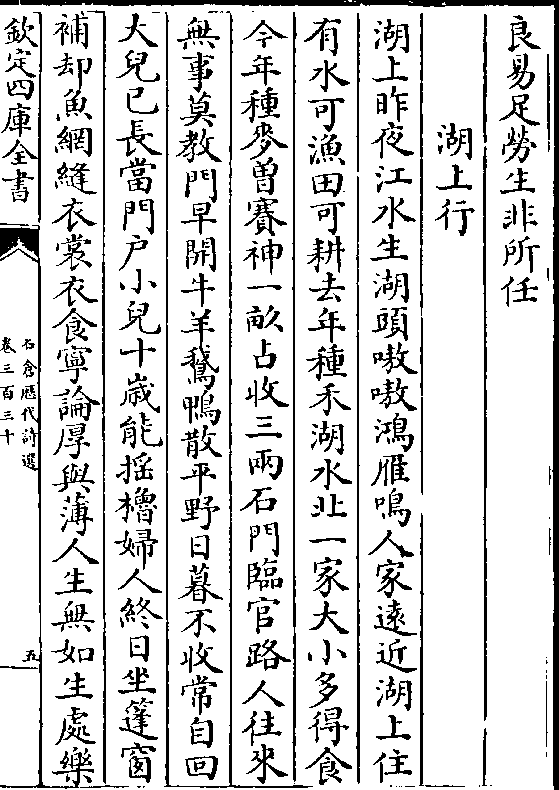 良易足勞生非所任
湖上行
湖上昨夜江水生湖頭嗷嗷鴻雁鳴人家遠近湖上住
有水可漁田可耕去年種禾湖水北一家大小多得食
今年種麥曽賽神一畝占收三兩石門臨官路人徃來
無事莫教門早開牛羊鵞鴨散平野日暮不收常自回
大兒已長當門户小兒十歳能摇櫓婦人終日坐篷窗
補却魚網縫衣裳衣食寧論厚與薄人生無如生處樂
欽定四庫全書
石倉歷代詩選
卷三百三十
五